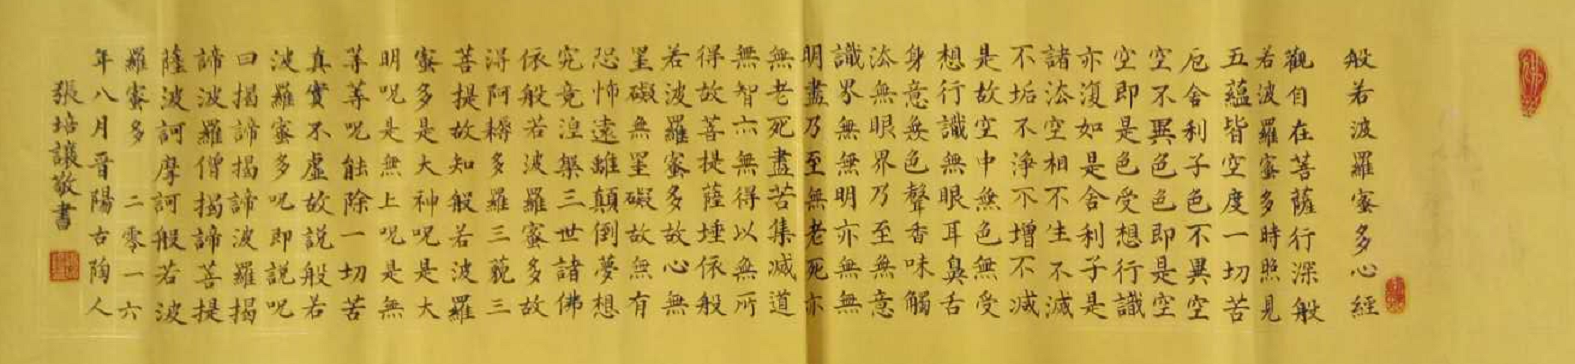 般若波羅蜜多心經
觀自在菩薩行深般
若波羅蜜多時照見
五蘊皆空度一切苦
厄舍利子色不異空
空不異色色即是空
空即是色受想行識
亦復如是舍利子是
諸法空相不生不滅
不垢不淨不增不減
是故空中無色無受
想行識無眼耳鼻舌
身意無色聲香味觸
法無眼界乃至無意
識界無無明亦無無
明盡乃至無老死亦
無老死盡苦集滅道
無智亦無得以無所
得故菩提薩埵依般
若波羅蜜多故心無
罣礙無罣礙故無有
恐怖遠離顛倒夢想
究竟涅槃三世諸佛
依般若波羅蜜多故
得阿耨多羅三藐三
菩提故知般若波羅
蜜多是大神呪是大
明呪是無上呪是無
等等呪能除一切苦
真實不虛故説般若
波羅蜜多呪即説呪
曰揭諦揭諦波羅揭
諦波羅僧揭諦菩提
薩波訶摩訶般若波
羅蜜多 二零一六
年八月晉陽古陶人
張培讓敬書